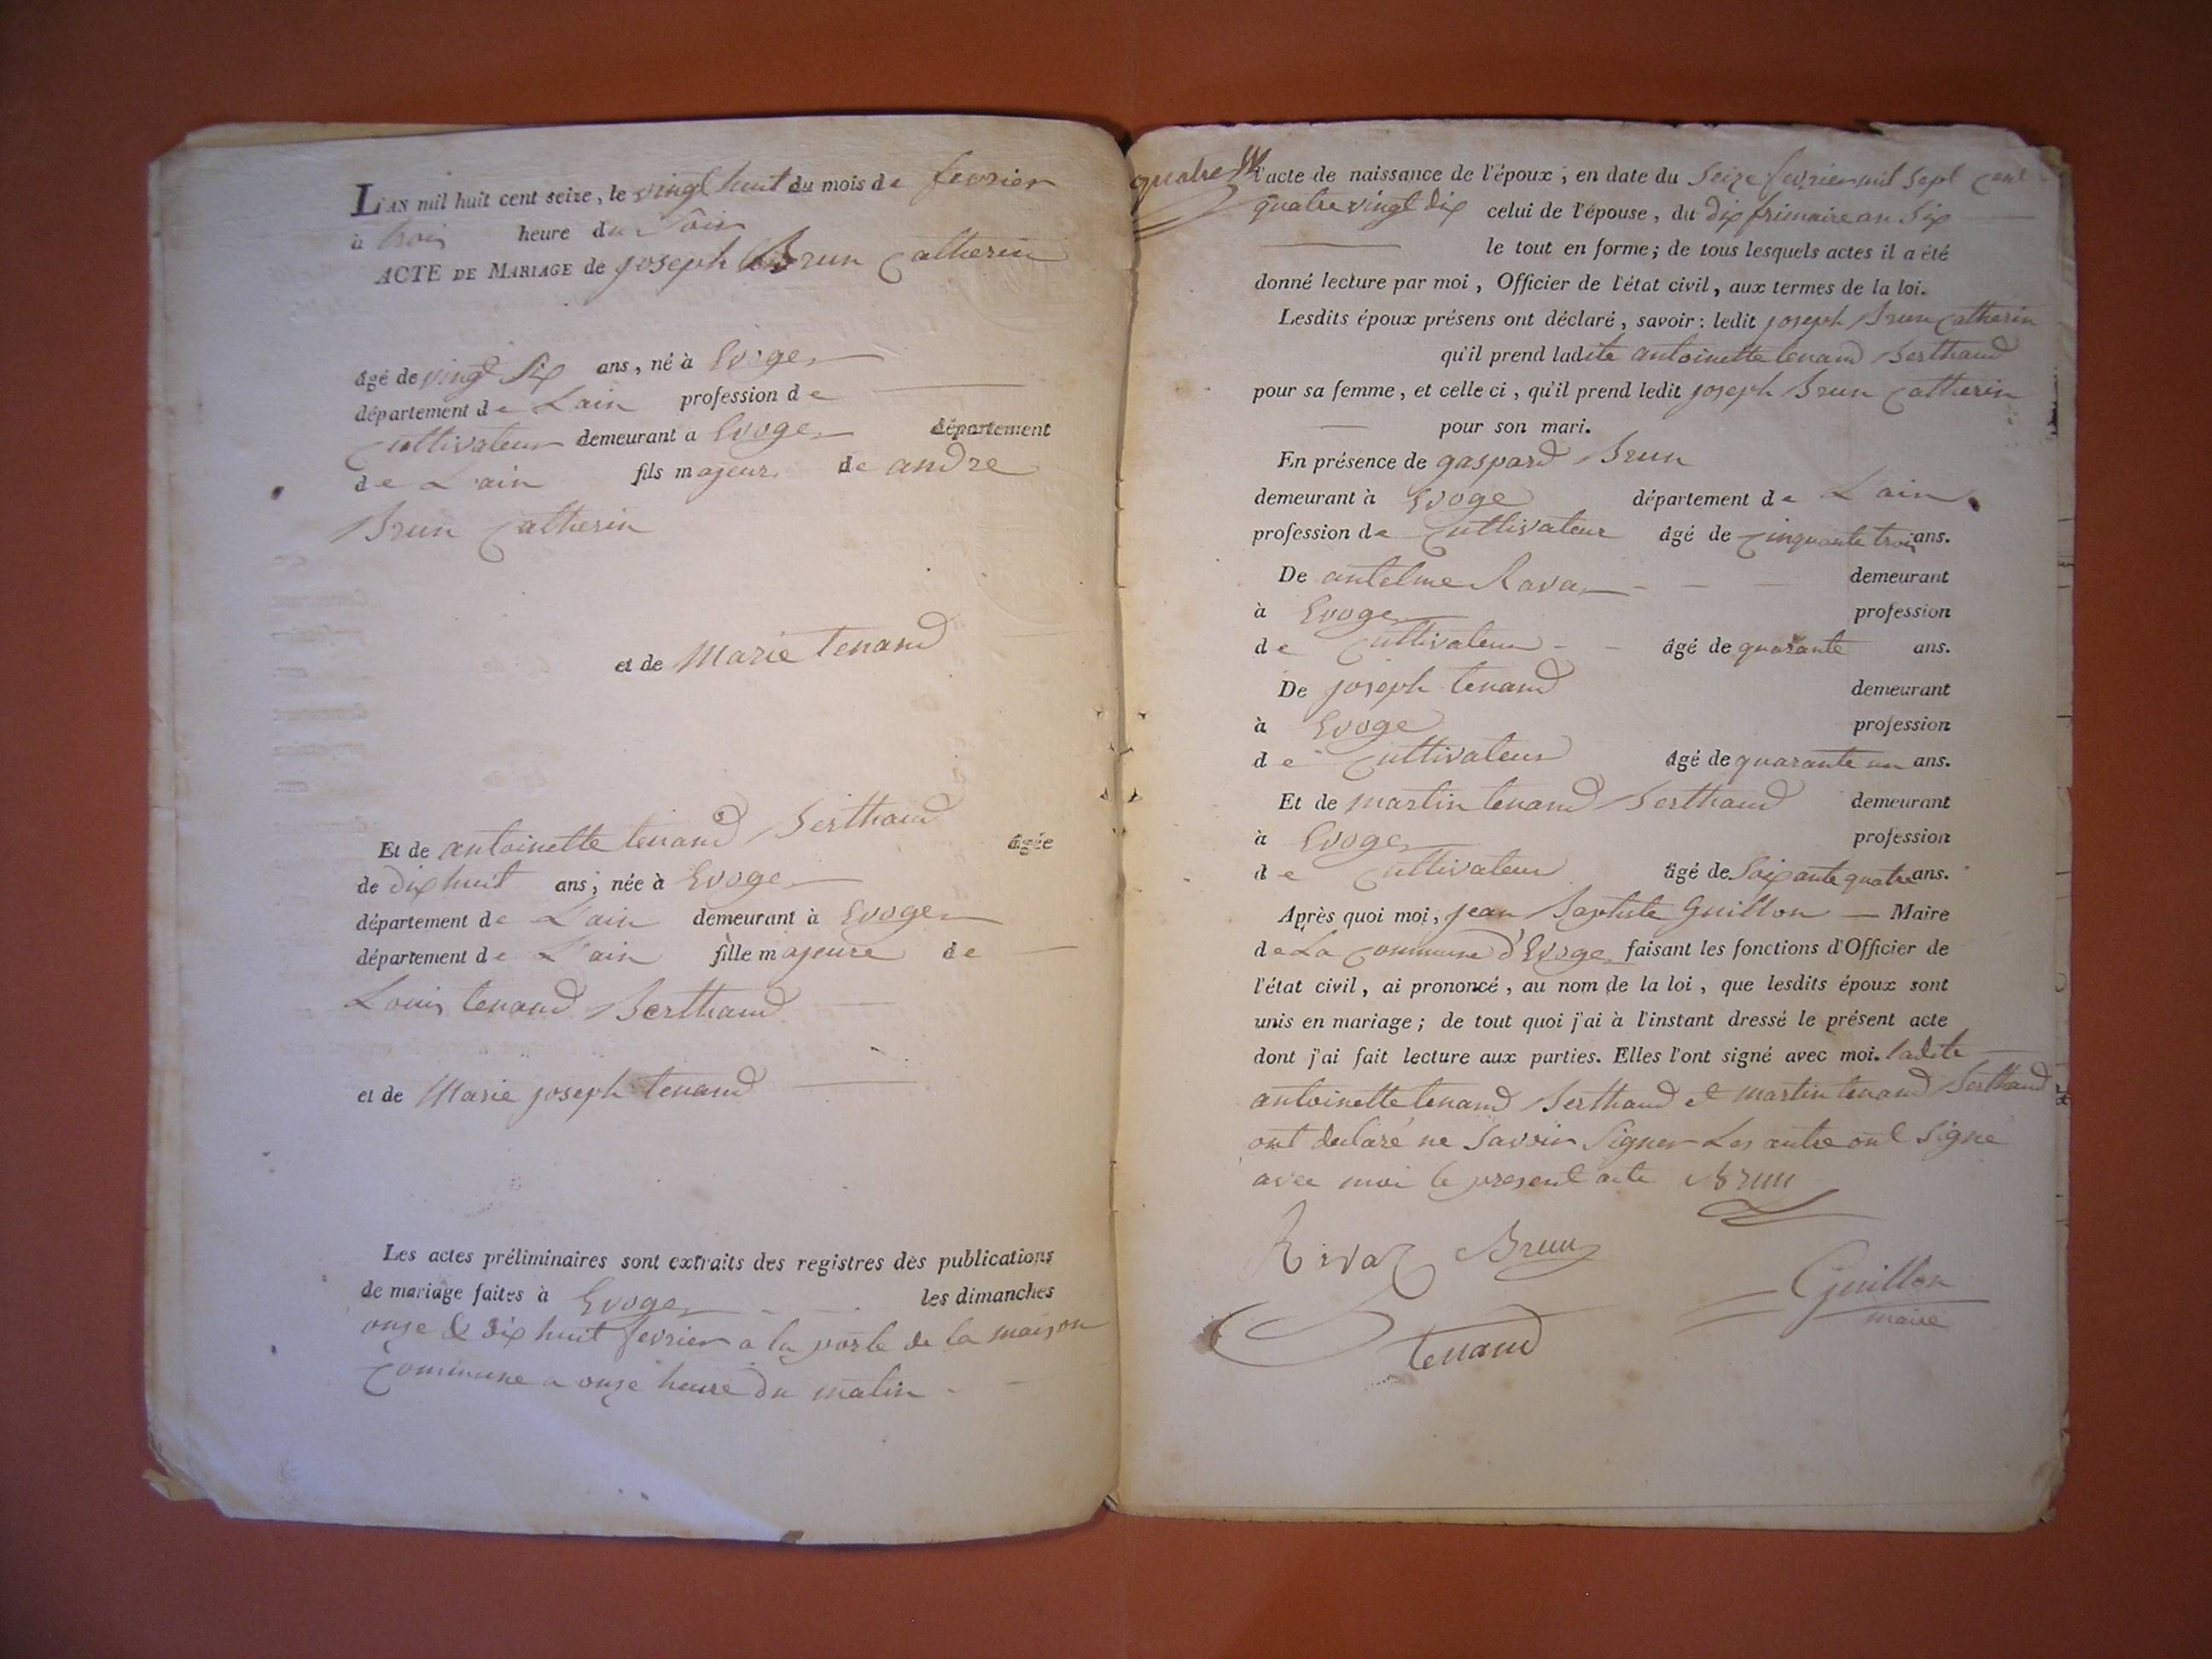 L'AN mil huit cent seize, le vingt huit du mois de fevrier
à trois heure du Soir
ACTE DE MARIAGE de joseph Brun Catherin
âgé de vingt Six ans, né à Evoges
département de L'ain profession de
Cultivateur demeurant à Evoges département
de L'ain fils majeur de andre
Brun Catherin
et de Marie tenand
Et de antoinette tenand Berthaud âgée
de dix huit ans, née à Evoges
département de L'ain demeurant à Evoges
département de L'ain fille majeure de
Louis tenand Berthaud
et de Marie joseph tenand
Les actes préliminaires sont extraits des registres des publications
de mariage faites à Evoges les dimanches
onze & dix huit fevrier a la porte de la maison
Commune a onze heure du matin
quatre
l'acte de naissance de l'époux ; en date du Seize fevrier mil Sept Cent
quatre vingt dix celui de l'épouse, du dix frimaire an Six
le tout en forme; de tous lesquels actes il a été
donné lecture par moi, Officier de l'état civil, aux termes de la loi.
Lesdits époux présens ont déclaré, savoir : ledit joseph Brun Catherin
qu'il prend ladite antoinette tenand Berthaud
pour sa femme, et celle ci, qu'il prend ledit joseph Brun Catherin
pour son mari.
En présence de gaspard Brun
demeurant à Evoge département de L'ain
profession de Cultivateur âgé de Cinquante trois ans.
De antelme Ravaz demeurant
à Evoges profession
de Cultivateur âgé de quarante ans.
De joseph tenand demeurant
à Evoge profession
de Cultivateur âgé de quarante un ans.
Et de martin tenand Berthaud demeurant
à Evoges profession
de Cultivateur âgé de Soixante quatre ans.
Après quoi moi, jean Baptiste Guillon Maire
de La Commune d'Evoges faisant les fonctions d'Officier de
l'état civil, ai prononcé, au nom de la loi, que lesdits époux sont
unis en mariage; de tout quoi j'ai à l'instant dressé le présent acte
dont j'ai fait lecture aux parties. Elles l'ont signé avec moi. ladite
antoinette tenand Berthaud et martin tenand Berthaud
ont declaré ne Savoir Signer Les autre ont Signé
avec moi le present acte Brun
Brun
Guillon
maire
tenand